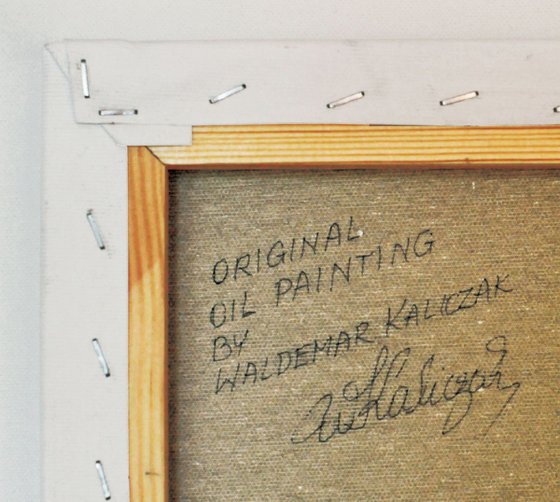 ORIGINAL
OIL PAINTING
BY
WALDEMAR KALICZAK
W Kaliczak